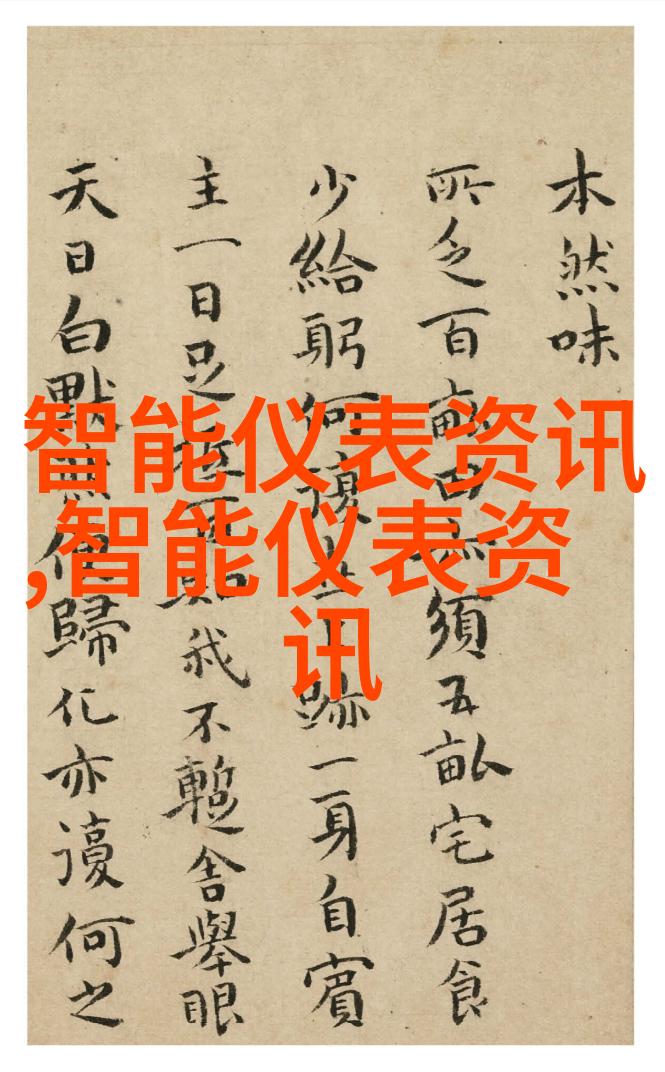 本然味
所乏百畝須五畝宅居食
少給躬何復跡一身自賓
主一日足我不蹔舍舉眼
天日白默無便歸化亦復何之
智能仪表资讯
,智能仪表资
讯